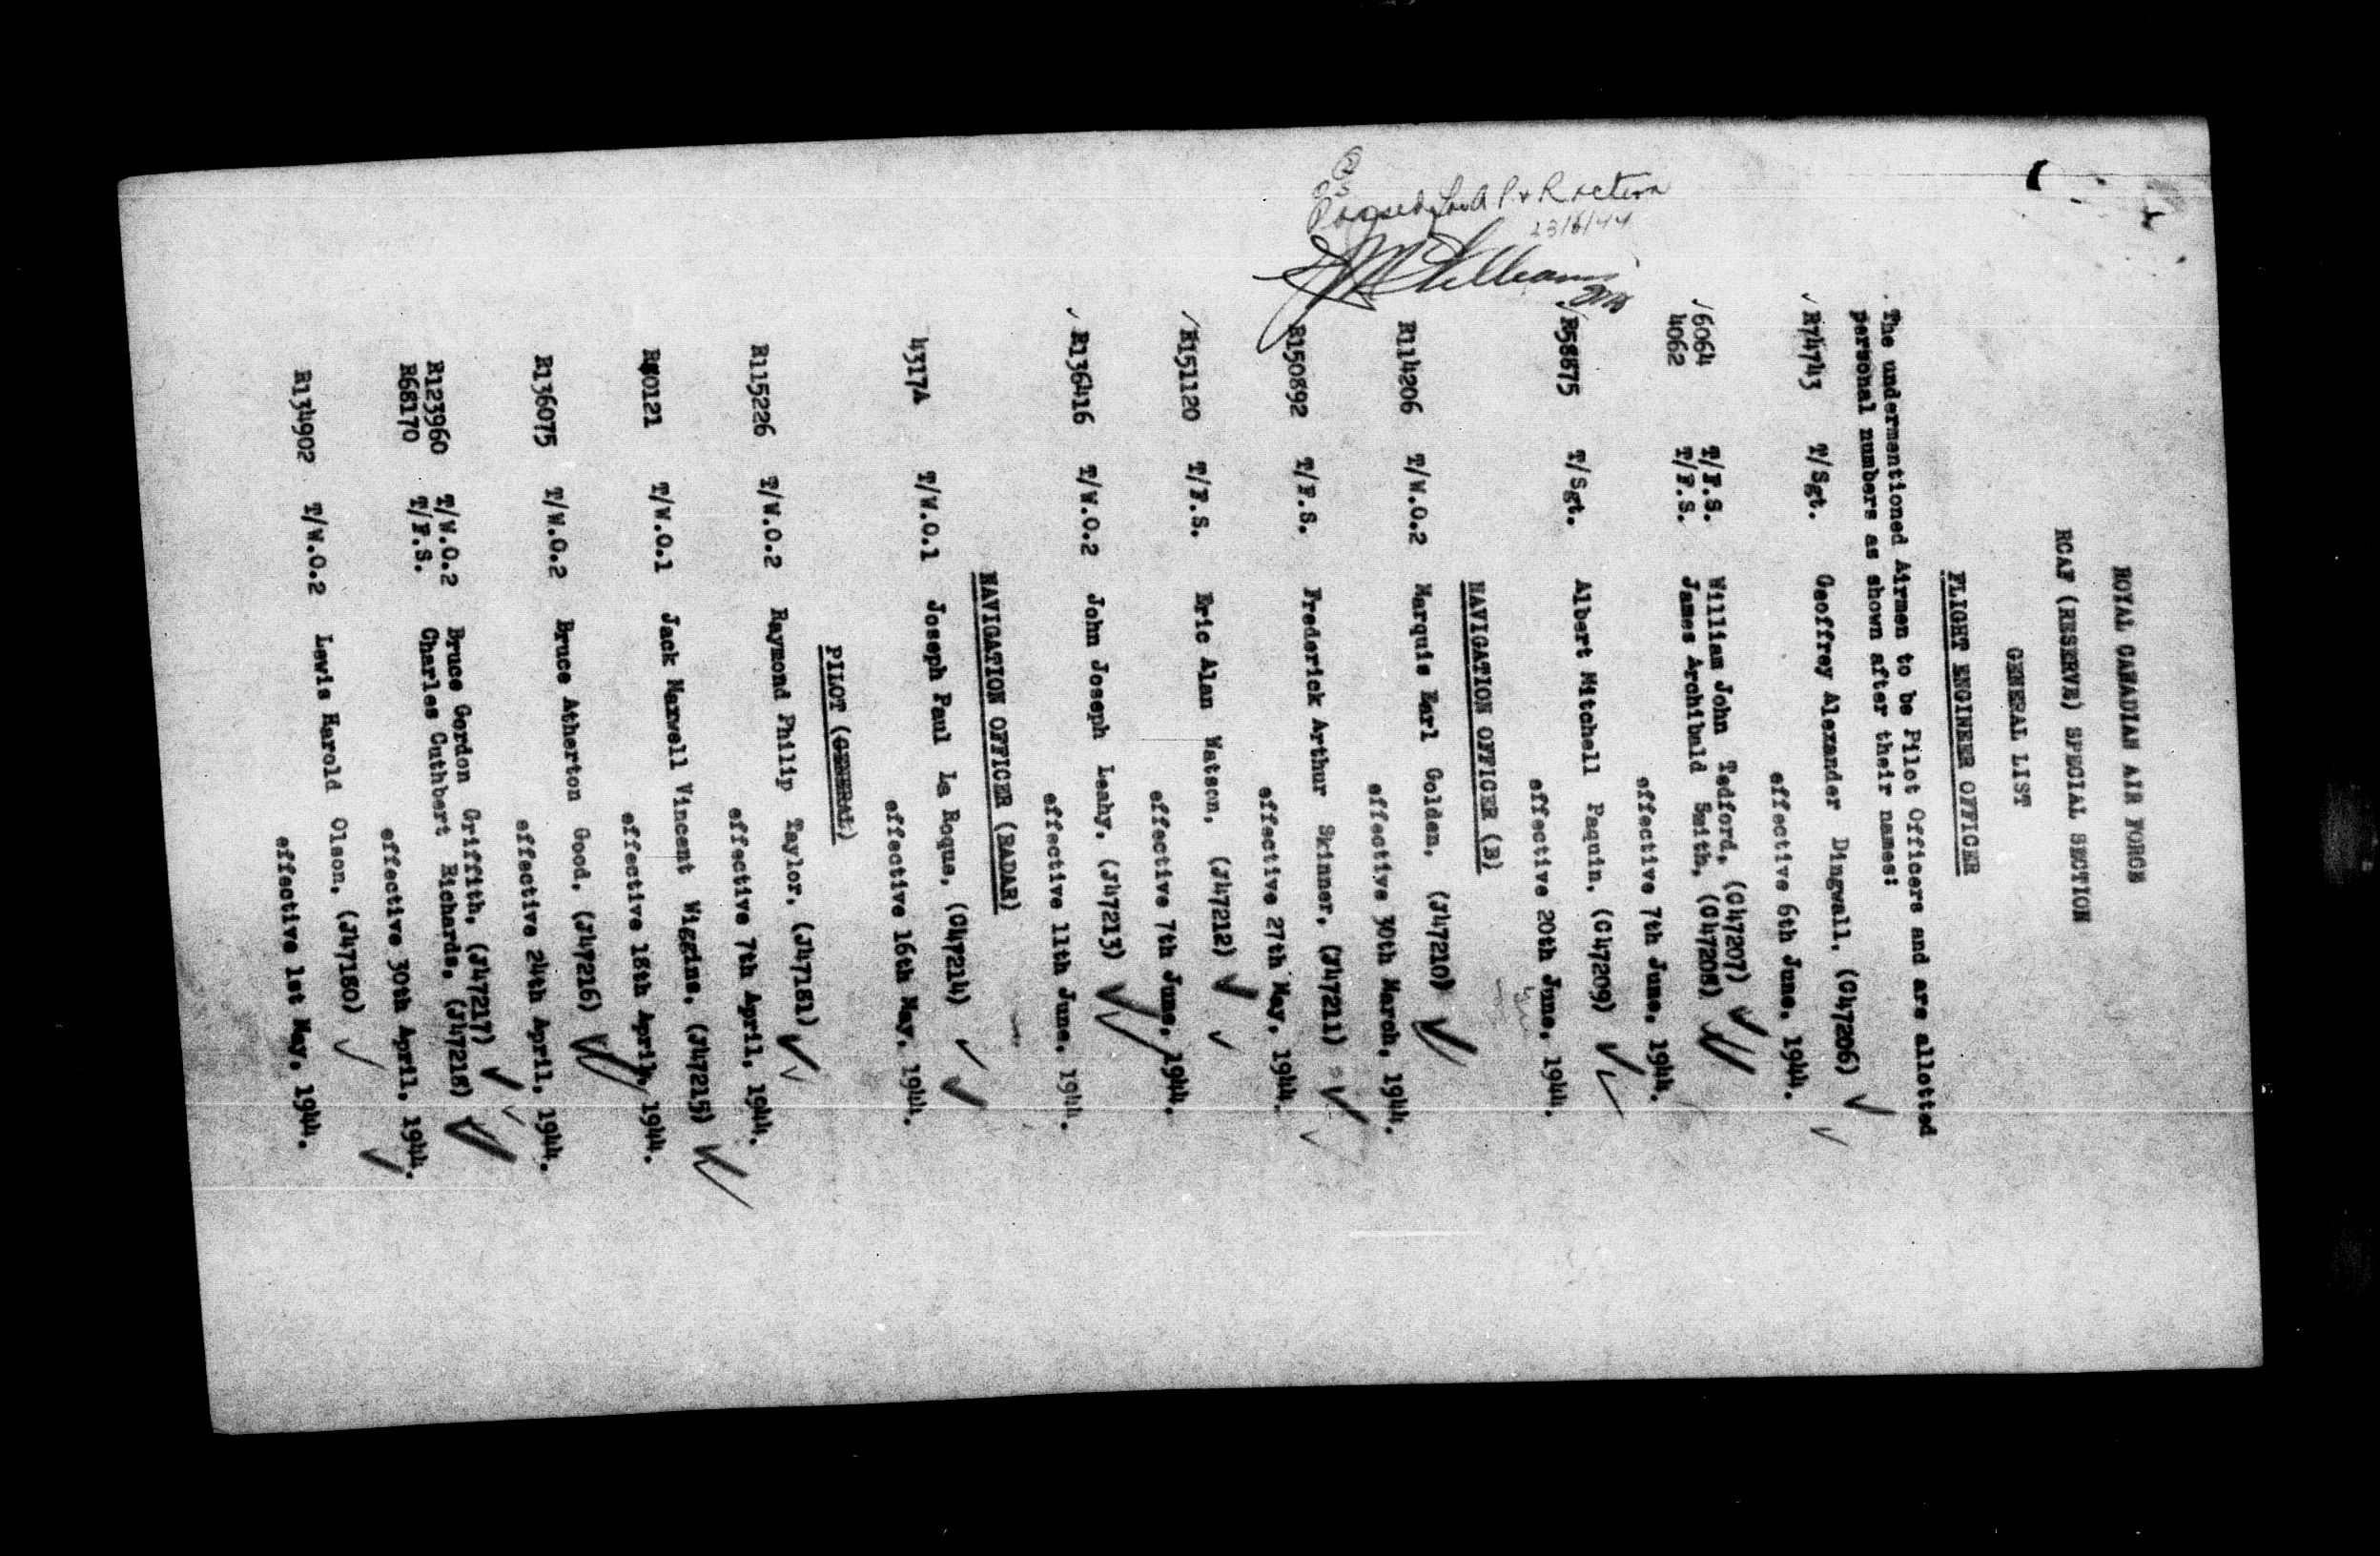 ROYAL CANADIAN AIR FORCE
RCAF (RESERVE) SPECIAL SECTION
GENERAL LIST
FLIGHT ENGINEER OFFICER
The undermentioned Airmen to be Pilot Officers and are allotted
personal numbers as shown after their names:
R74743 T/Sgt. Geoffrey Alexander Dingwall, (C47206)
effective 6th June, 1944.
6064 T/F.S. William John Tedford, (C47207)
4062 T/F.S. James Archibald Smith, (C47208)
effective 7th June, 1944.
R58875 T/Sgt. Albert Mitchell Paquin, (C47209)
effective 20th June, 1944.
NAVIGATION OFFICER (B)
R114206 T/W.O.2 Marquis Earl Golden, (J47210)
effective 30th March, 1944.
R150892 T/F.S. Frederick Arthur Skinner, (J47211)
effective 27th May, 1944.
R151120 T/F.S. Eric Alan Watson, (J47212)
effective 7th June, 1944.
R136416 T/W.O.2 John Joseph Leahy, (J47213)
effective 11th June, 1944.
NAVIGATION OFFICER (RADAR)
4317A T/W.O.1 Joseph Paul La Roque, (C47214)
effective 16th May, 1944.
PILOT (GENERAL)
R115226 T/W.O.2 Raymond Philip Taylor, (J47181)
effective 7th April, 1944.
R80121 T/W.O.1 Jack Maxwell Vincent Wiggins, (J47215)
effective 18th April, 1944.
R136075 T/W.O.2 Bruce Atherton Good, (J47216)
effective 24th April, 1944.
R123960 T/W.O.2 Bruce Gordon Griffith, (J47217)
R68170 T/F.S. Charles Cuthbert Richards, (J47218)
effective 30th April, 1944.
R134902 T/W.O.2 Lewis Harold Olson, (J47180)
effective 1st May, 1944.
Passed for A P & R action
23/6/44
McWilliams